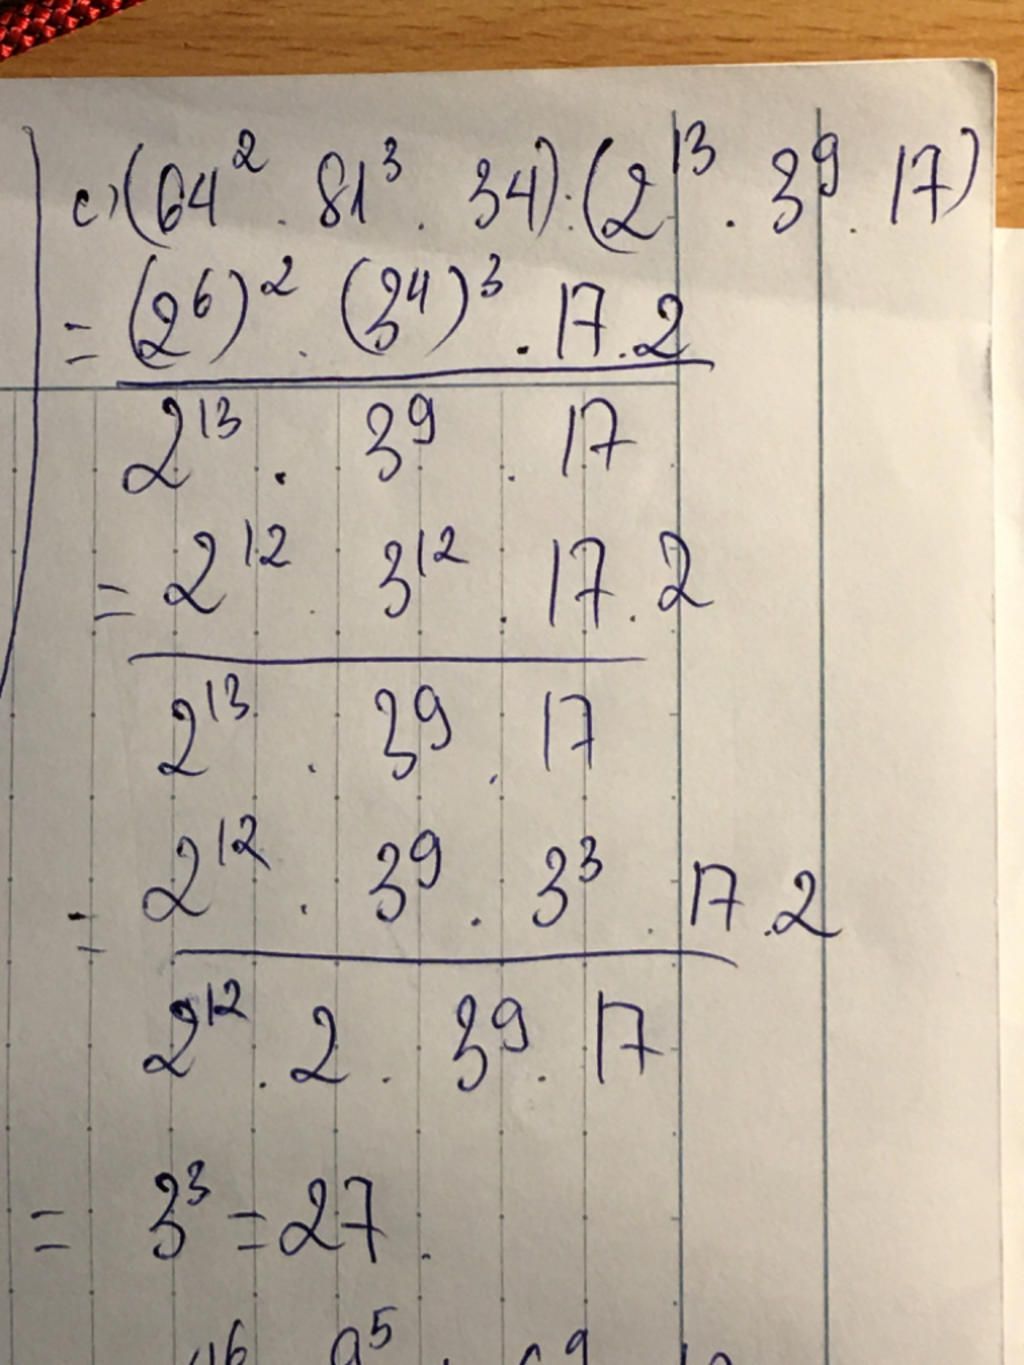 c) (64² . 81³ . 34) : (2¹³ . 3⁹ . 17)
= (2⁶)² . (3⁴)³ . 17 . 2
2¹³ . 3⁹ . 17
= 2¹² . 3¹² . 17 . 2
2¹³ . 3⁹ . 17
= 2¹² . 3⁹ . 3³ . 17 . 2
2¹² . 2 . 3⁹ . 17
= 3³ = 27 .